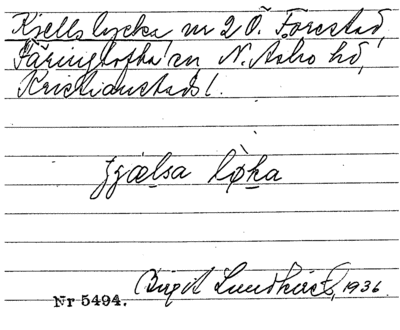 Kjellslycka, nr 2 Ö. Forestad,
Färingtofta sn, N. Åsbo hd,
Kristianstads l.
jjælsa løka
Birgit Lundkvist, 1936.
Nr 5494.